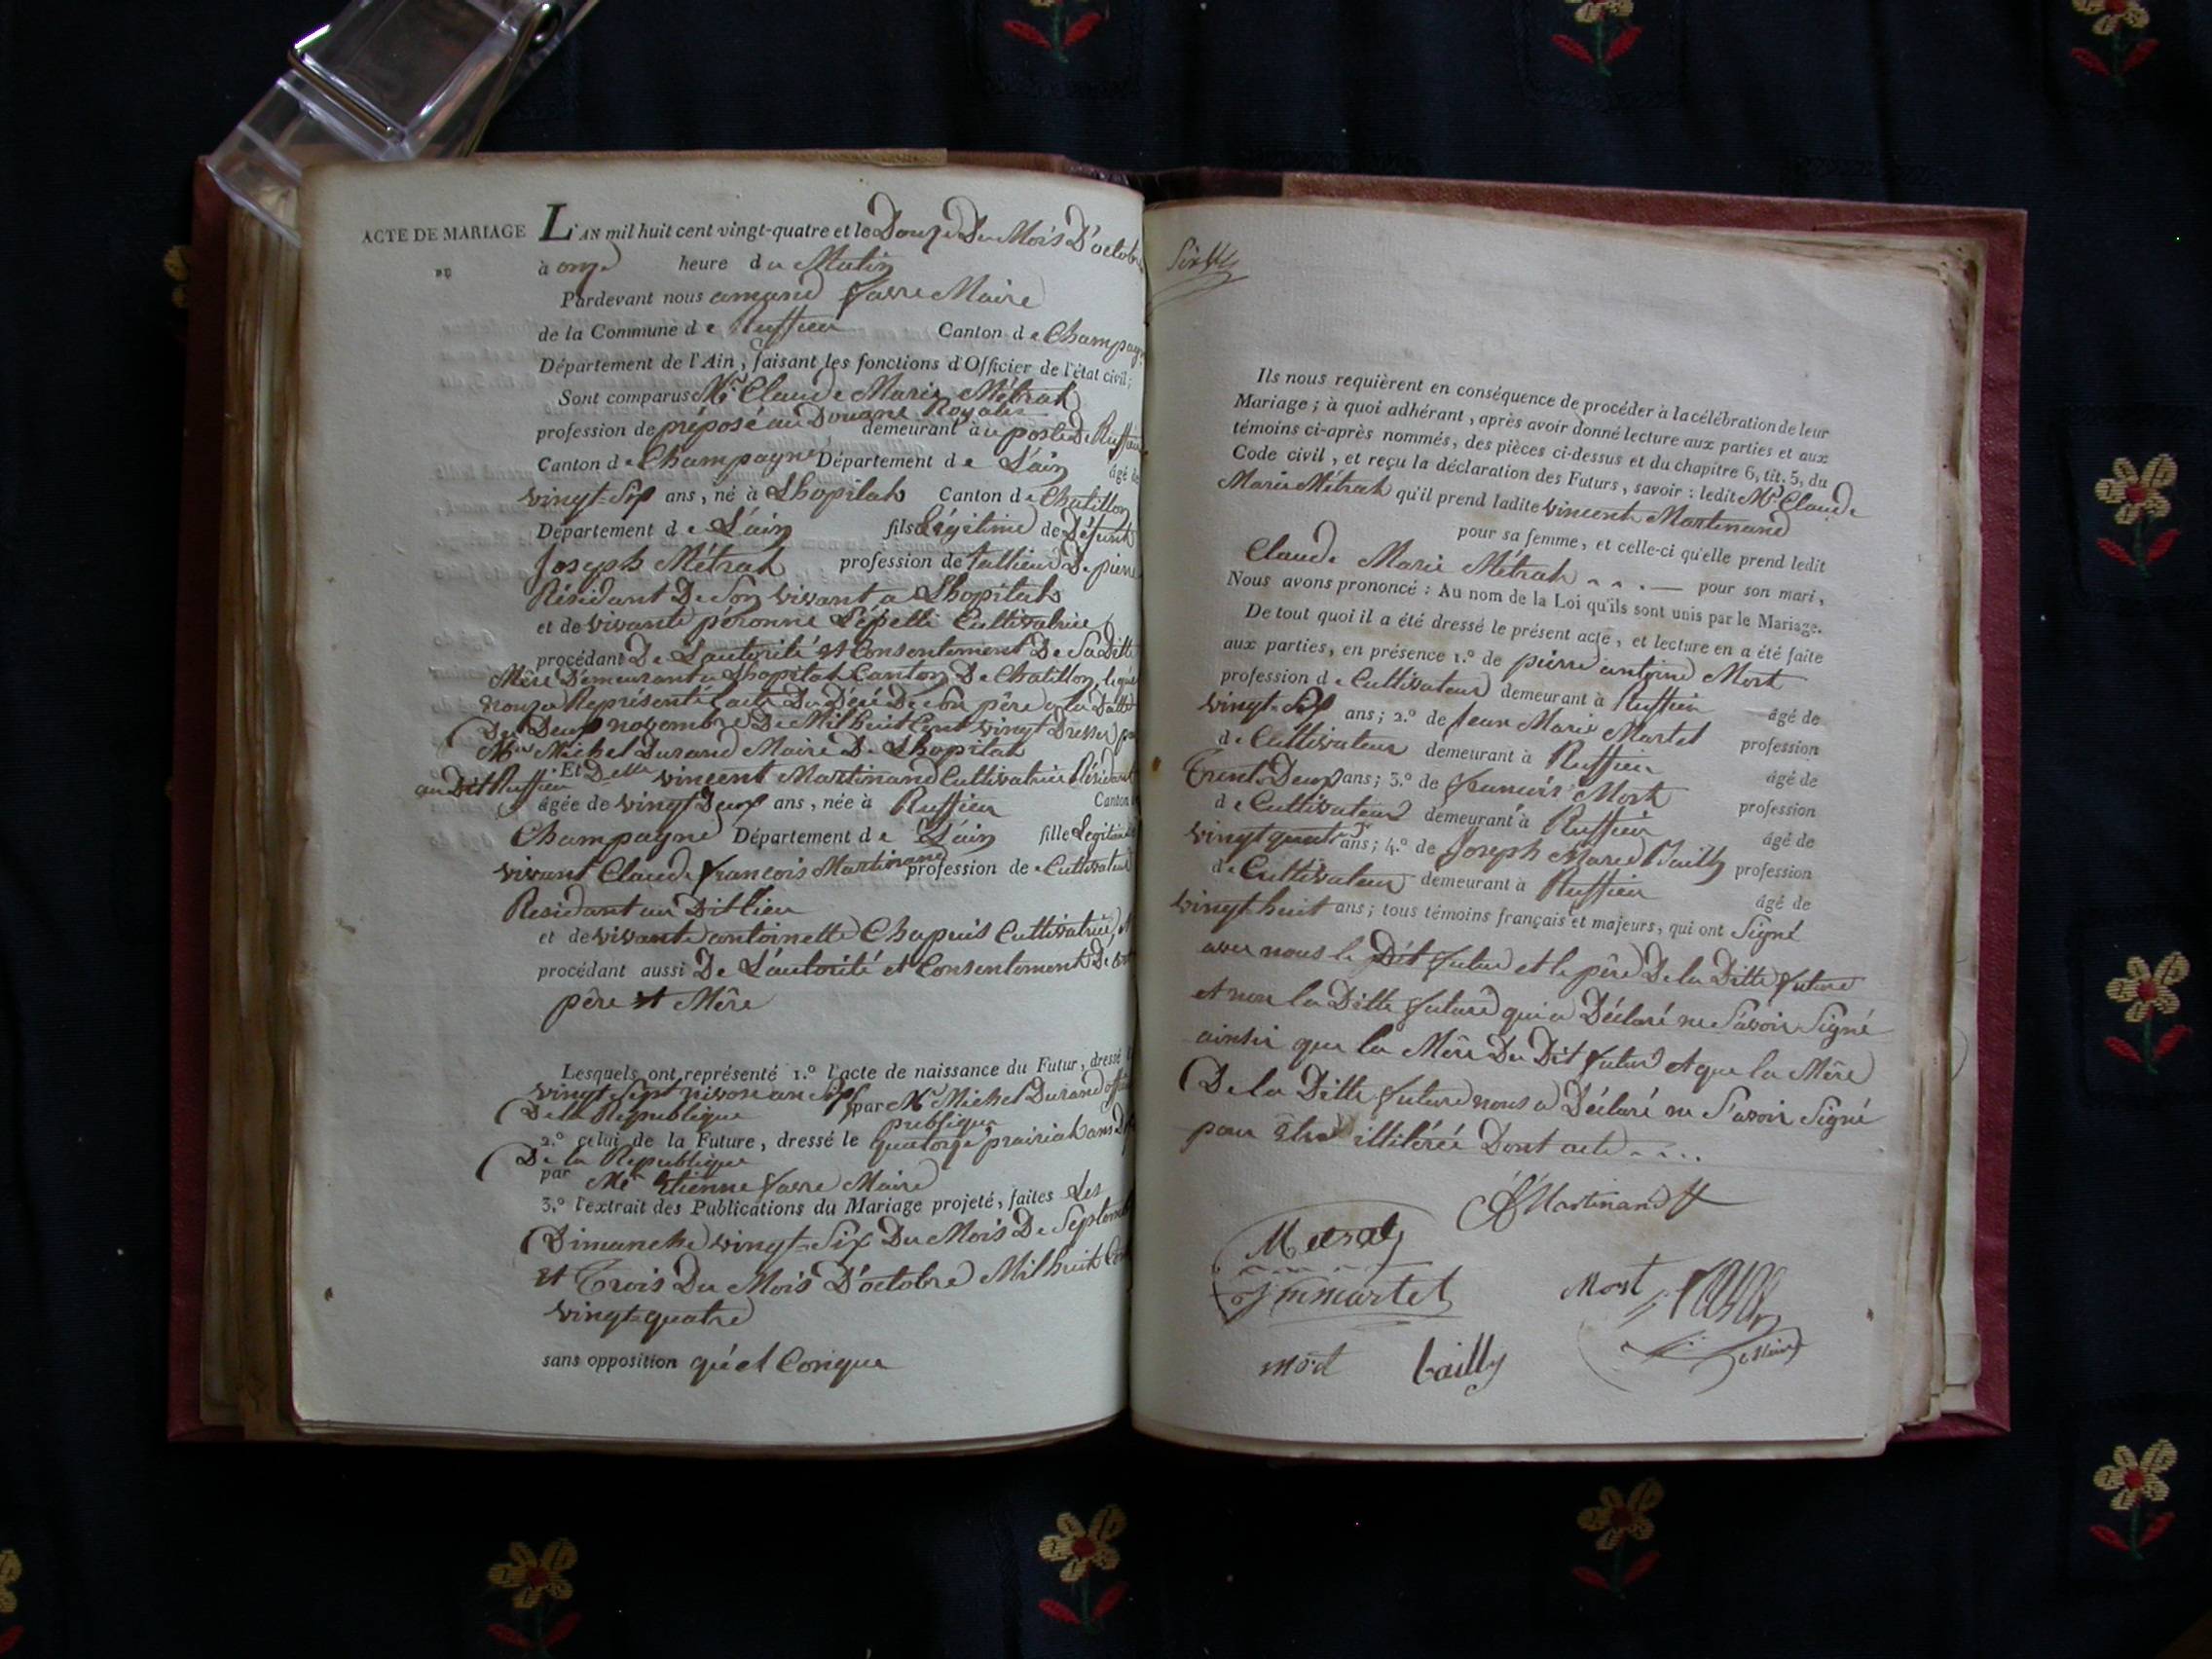 ACTE DE MARIAGE L'AN mil huit cent vingt-quatre et le Douze Du Mois D'octobre
DU à onze heure du Matin
Pardevant nous amand favre Maire
de la Commune de Ruffieu Canton de Champagne
Département de l'Ain, faisant les fonctions d'Officier de l'état civil;
Sont comparus Mr Claude Marie Métral
profession de préposé au Douane Royales demeurant au poste De Ruffieu
Canton de Champagne Département de L'ain âgé de
vingt-Six ans, né à Lhopital Canton de Chatillon
Département de L'ain fils Légitime de Défunt
Joseph Métral profession de tallieur De pierre
Résidant De Son vivant a Lhopital
et de vivante péronne Cultivatrice
procédant De L'autorité et Consentement De Sa Ditte
Mère Demeurant a Lhopital Canton De Chatillon, lequel
nous a Représenté l'acte Du Décé De Son père a la Datte
Du Deux novembre De Mil huit Cent vingt Dressé par
Mr Michel Durand Maire De Lhopital
Et Delle vincent Martinand Cultivatrice Résidant
au Dit Ruffieu
âgée de vingt Deux ans, née à Ruffieu Canton
Champagne Département de L'ain fille Legitime
vivant Claude françois Martinand profession de Cultivateur
Residant au Dit lieu
et de vivante antoinette Chapuis Cultivatrice
procédant aussi De L'autorité et Consentement De
père et Mère
Lesquels ont représenté 1.º l'acte de naissance du Futur, dressé
vingt Sept nivose an Six par Mr Michel Durand
De la République publique
2.º celui de la Future, dressé le quatorze prairial ans
De la Republique
par Mr Etienne favre Maire
3.º l'extrait des Publications du Mariage projeté, faites Les
Dimanche vingt-Six Du Mois De Septembre
Et Trois Du Mois D'octobre Mil huit Cent
vingt-quatre
sans opposition quél Conque
Ils nous requièrent en conséquence de procéder à la célébration de leur
Mariage; à quoi adhérant, après avoir donné lecture aux parties et aux
témoins ci-après nommés, des pièces ci-dessus et du chapitre 6, tit. 5, du
Code civil, et reçu la déclaration des Futurs, savoir: ledit Mr Claude
Marie Métral qu'il prend ladite vincent Martinand
pour sa femme, et celle-ci qu'elle prend ledit
Claude Marie Métral pour son mari,
Nous avons prononcé: Au nom de la Loi qu'ils sont unis par le Mariage.
De tout quoi il a été dressé le présent acte, et lecture en a été faite
aux parties, en présence 1.º de pierre antoine Mort
profession de Cultivateur demeurant à Ruffieu âgé de
vingt-Six ans; 2.º de Jean Marie Martel profession
de Cultivateur demeurant à Ruffieu âgé de
Trente Deux ans; 3.º de françois Mort profession
de Cultivateur demeurant à Ruffieu âgé de
vingt quatre ans; 4.º de Joseph Marie Bailly profession
de Cultivateur demeurant à Ruffieu âgé de
vingt huit ans; tous témoins français et majeurs, qui ont Signé
avec nous le Dit futur et le père De la Ditte future
et non la Ditte future qui a Déclaré ne Savoir Signé
ainsi que la Mère Du Dit futur et que la Mère
De la Ditte future nous a Déclaré ne Savoir Signé
pour Etre illitérée Dont acte
Martinand
Metral
jmmartel Mort
mort bailly